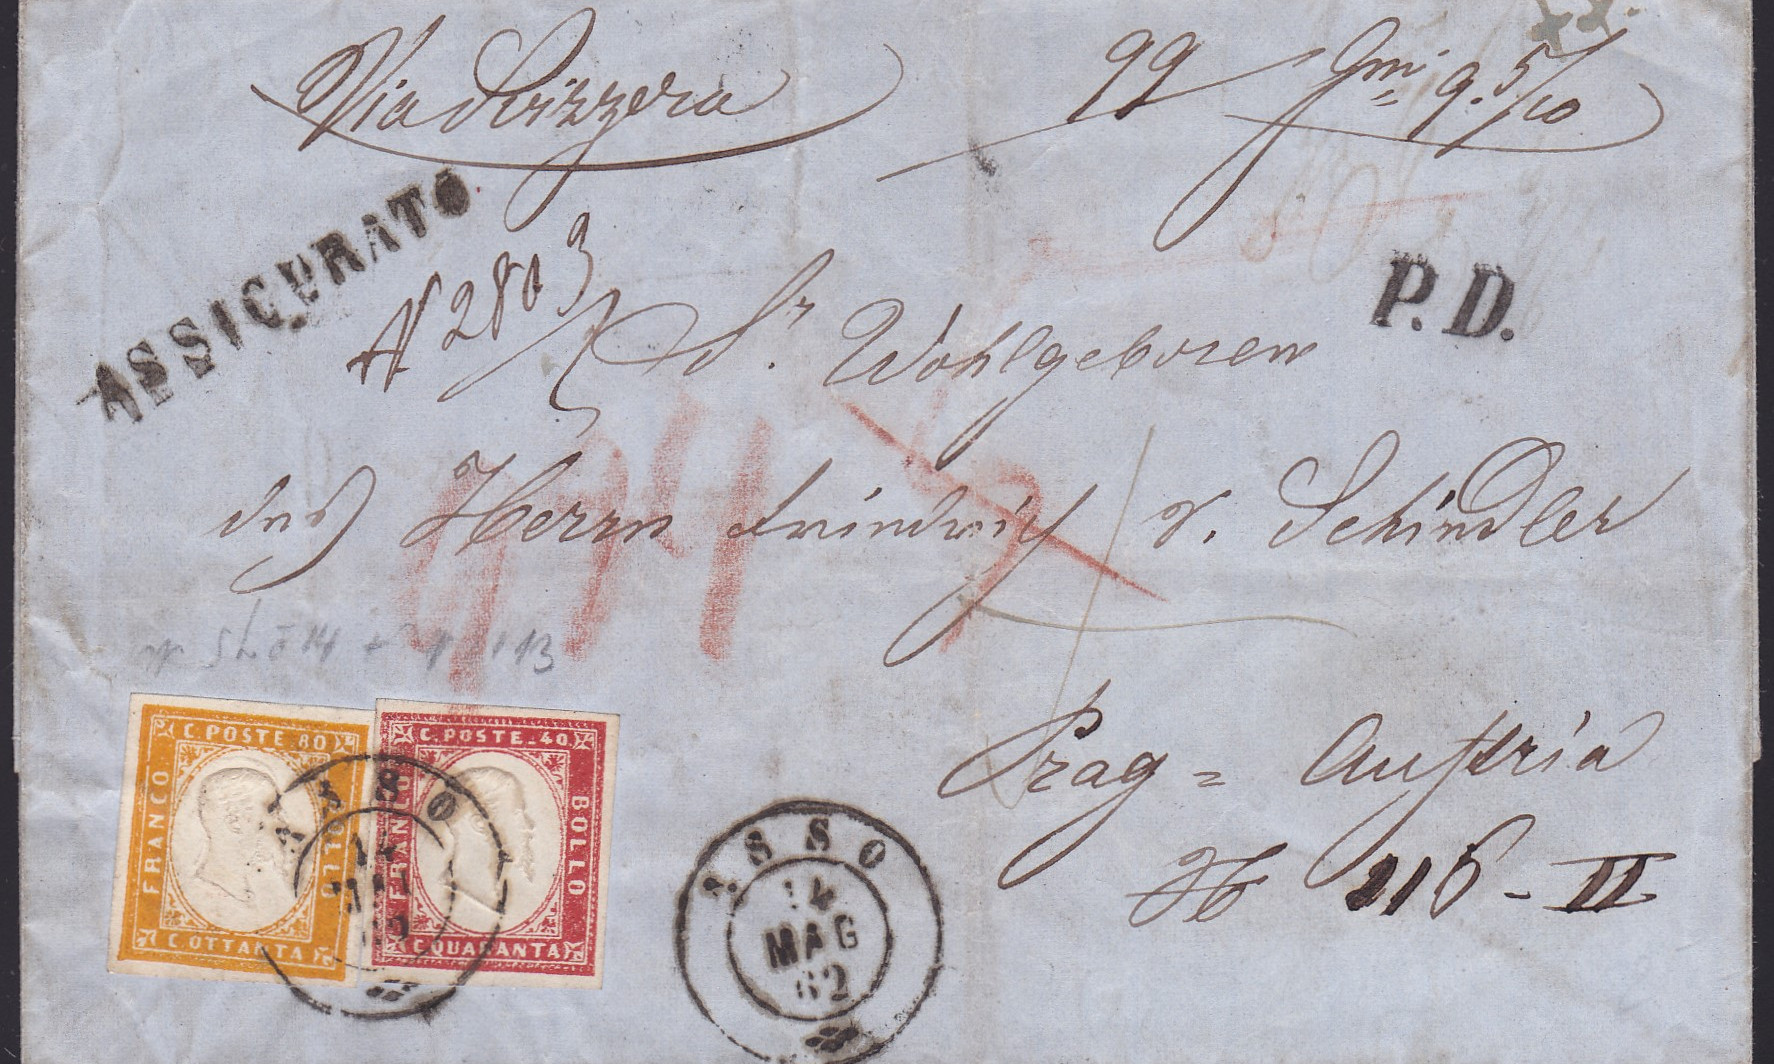 Via Svizzera
99 Gmi 9. 5/10
ASSICURATO
N 2803
P.D.
Sr. Wohlgeboren
des Herrn Friedrich v. Schindler
Prag = Austria
N 216 - II
C. POSTE. 80
FRANCO
BOLLO
C. OTTANTA
C. POSTE. 40.
FRANCO
BOLLO
C. QUARANTA
ASSO
14
MAG
62
ASSO
14
MAG
62